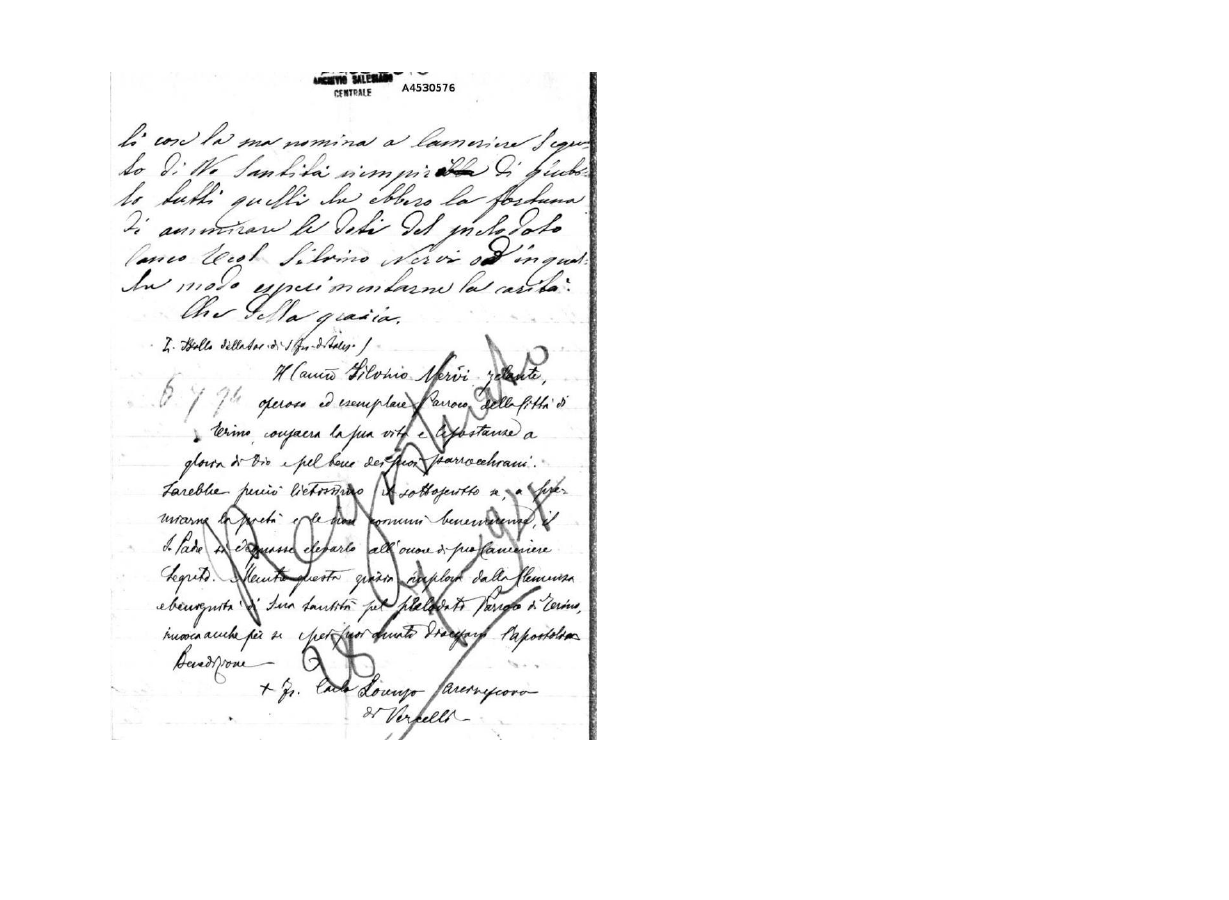 ARCHIVIO SALESIANO
CENTRALE
A4530576
li così la sua nomina a Cameriere Segre-
to di Va Santità riempirebbe di giubi-
lo tutti quelli che ebbero la fortuna
di ammirare le doti del prelodato
Canco Teol Silvino Nervi od in qual-
che modo esperimentarne la carità.
Che della grazia.
L. Bollo della Soc. di S. Fr. di Sales
Il Canco Silvino Nervi zelante,
operoso ed esemplare Parroco della Città di
Trino, consacra la sua vita e le sostanze a
gloria di Dio e pel bene dei suoi parrocchiani.
Sarebbe perciò lietissimo il sottoscritto se, a pre-
miarne la pietà e le non comuni benemerenze, il
S. Padre si degnasse elevarlo all'onore di suo Cameriere
Segreto. Mentre questa grazia implora dalla Clemenza
e benignità di Sua Santità pel prelodato Parroco di Trino,
invoca anche per se e per suoi amati diocesani l'apostolica
Benedizione
+ Fr. Carlo Lorenzo Arcivescovo
di Vercelli
6 7 94
Registrato
28-7-94